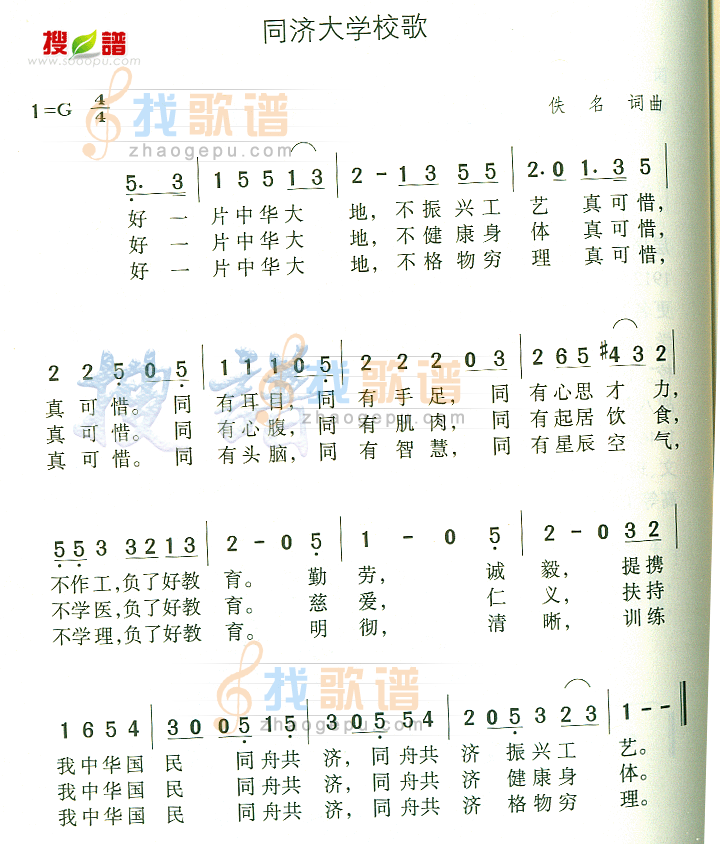 同济大学校歌
搜谱
www.sooopu.com
1=G 4/4
佚 名 词曲
找歌谱
zhaogepu.com
5. 3 | 1 5 5 1 3 | 2 - 1 3 5 5 | 2. 0 1. 3 5 |
好 一 片中华大 地, 不振兴工 艺 真可惜,
好 一 片中华大 地, 不健康身 体 真可惜,
好 一 片中华大 地, 不格物穷 理 真可惜,
2 2 5 0 5 | 1 1 1 0 5 | 2 2 2 0 3 | 2 6 5 #4 3 2 |
真可惜。 同 有耳目, 同 有手足, 同 有心思才 力,
真可惜。 同 有心腹, 同 有肌肉, 同 有起居饮 食,
真可惜。 同 有头脑, 同 有智慧, 同 有星辰空 气,
搜谱
找歌谱
zhaogepu.com
5 5 3 3 2 1 3 | 2 - 0 5 | 1 - 0 5 | 2 - 0 3 2 |
不作工,负了好教 育。 勤 劳, 诚 毅, 提携
不学医,负了好教 育。 慈 爱, 仁 义, 扶持
不学理,负了好教 育。 明 彻, 清 晰, 训练
找歌谱
zhaogepu.com
1 6 5 4 | 3 0 0 5 1 5 | 3 0 5 5 4 | 2 0 5 3 2 3 | 1 - - ‖
我中华国 民 同舟共 济, 同舟共 济 振兴工 艺。
我中华国 民 同舟共 济, 同舟共 济 健康身 体。
我中华国 民 同舟共 济, 同舟共 济 格物穷 理。